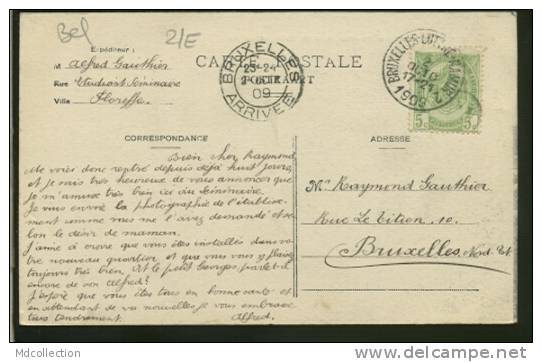 Bel
21E
Expéditeur :
M Alfred Gauthier
Rue Etudiant Séminaire
Ville Floreffe
CARTE POSTALE
BRUXELLES
23-24
1909
ARRIVÉE
BRUXELLES
17-
1909
5c 5c
CORRESPONDANCE
ADRESSE
Bien cher Raymond
Me voici donc rentré depuis déjà huit jours,
et je suis très heureux de vous annoncer que
je m'amuse très bien ici au Séminaire.
Je vous envoie la photographie de l'établisse-
ment comme vous me l'avez demandé et se-
lon le désir de maman.
J'aime à croire que vous êtes installés dans vo-
tre nouveau quartier et que vous vous y plaisez
toujours très bien. Et le petit Georges parle-t-il
encore de son Alfred?
J'espère que vous êtes tous en bonne santé et
en attendant de vos nouvelles je vous embrasse
tous tendrement. Alfred.
Mr Raymond Gauthier
Rue Le Titien 10.
Bruxelles. Nord-Est
MDcollection
www.delcampe.net